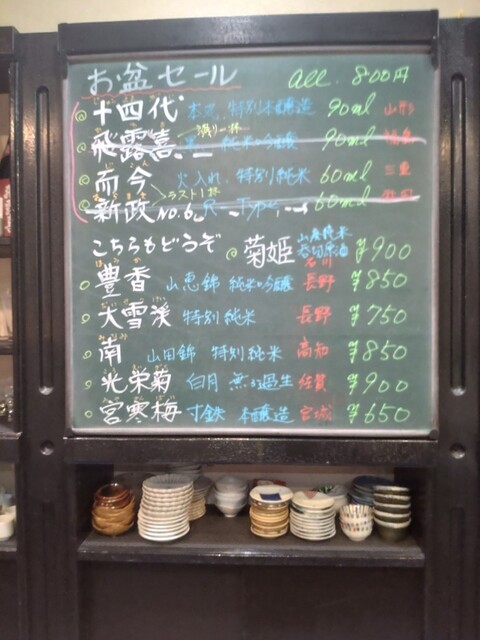 お盆セール all 800円
十四代 本丸 特別本醸造 90ml 山形
飛露喜 純米吟醸 90ml 福島
残り一杯
而今 火入れ 特別純米 60ml 三重
ラスト1杯
新政 No.6 60ml 秋田
こちらもどうぞ
菊姫 山廃純米 石川 ¥900
豊香 山恵錦 純米吟醸 長野 ¥850
大雪渓 特別純米 長野 ¥750
南 山田錦 特別純米 高知 ¥850
光栄菊 白月 無濾過生 佐賀 ¥900
宮寒梅 寸鉄 本醸造 宮城 ¥650